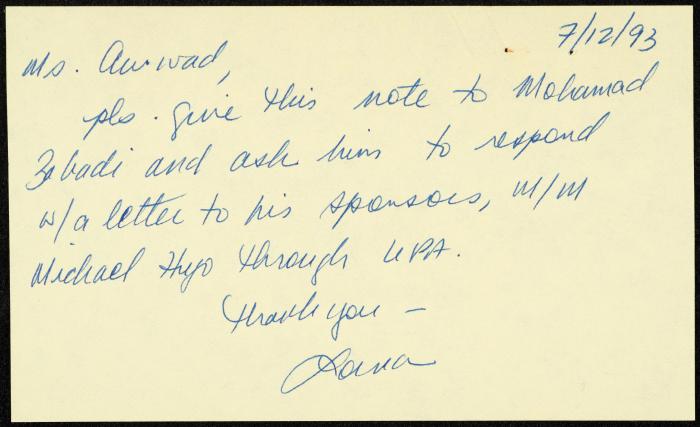 7/12/93
Ms. Awwad,
pls. give this note to Mohamad
Zabadi and ask him to respond
w/a letter to his sponsors, M/M
Michael Hugo through UPA.
Thank you –